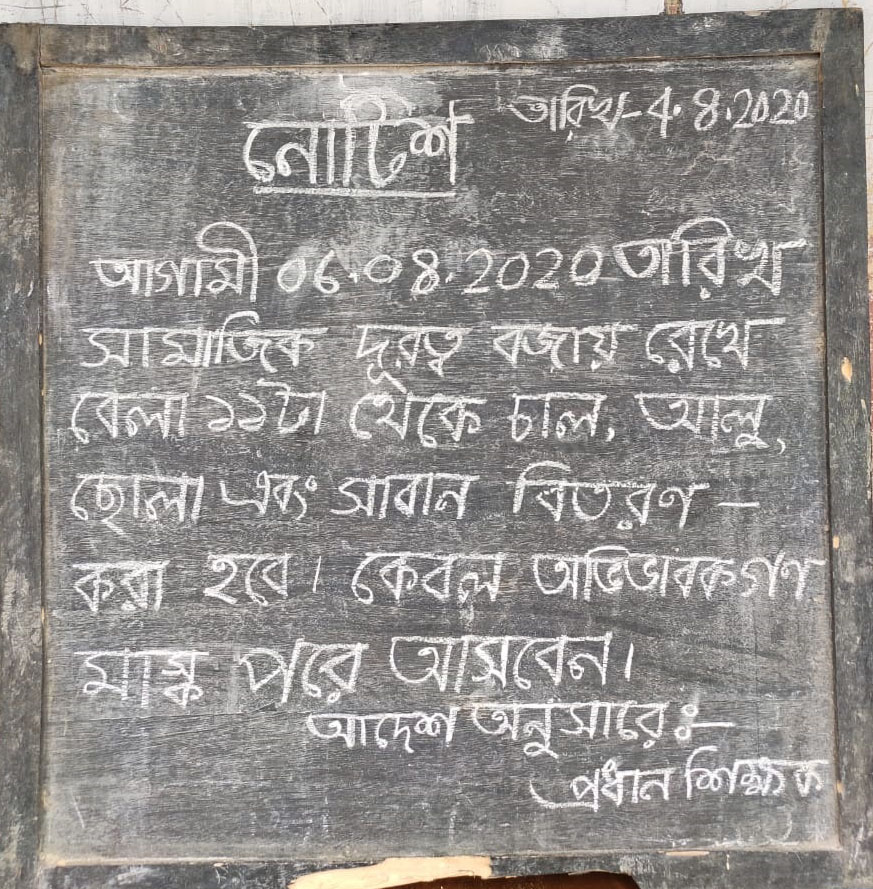 নোটিশ তারিখ-4.8.2020
আগামী 06.08.2020 তারিখ
সামাজিক দূরত্ব বজায় রেখে
বেলা ১১টা থেকে চাল, আলু,
ছোলা এবং সাবান বিতরণ -
করা হবে। কেবল অভিভাবকগণ
মাস্ক পরে আসবেন।
আদেশ অনুসারে :-
প্রধান শিক্ষক